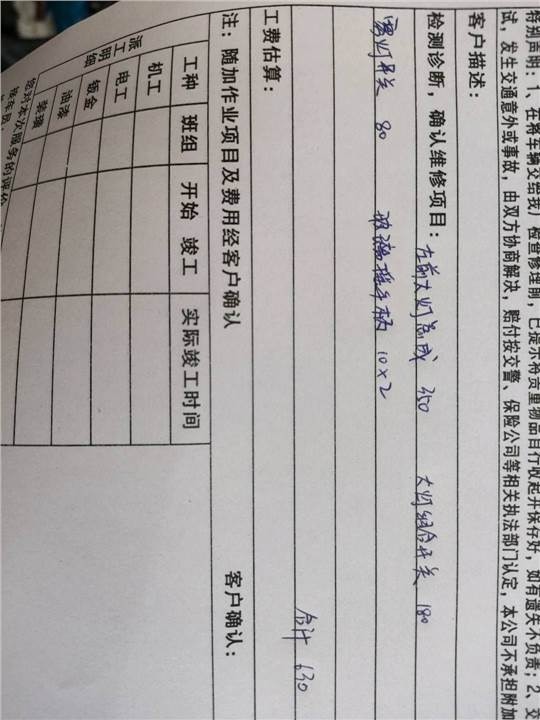 特别声明：1、在将车辆交给我厂检查修理前，已提示将贵重物品自行收起并保存好，如有遗失不负责；2、交
试，发生交通意外或事故，由双方协商解决，赔付按交警、保险公司等相关执法部门认定，本公司不承担附加
客户描述：
检测诊断，确认维修项目：左前大灯总成 350 大灯组合开关 180
雾灯开关 80 玻璃升降 10×2
合计 630
工费估算：
注：随加作业项目及费用经客户确认 客户确认：
派工明细
工种 班组 开始 竣工 实际竣工时间
机工
电工
钣金
油漆
装璜
您对本次服务的评价